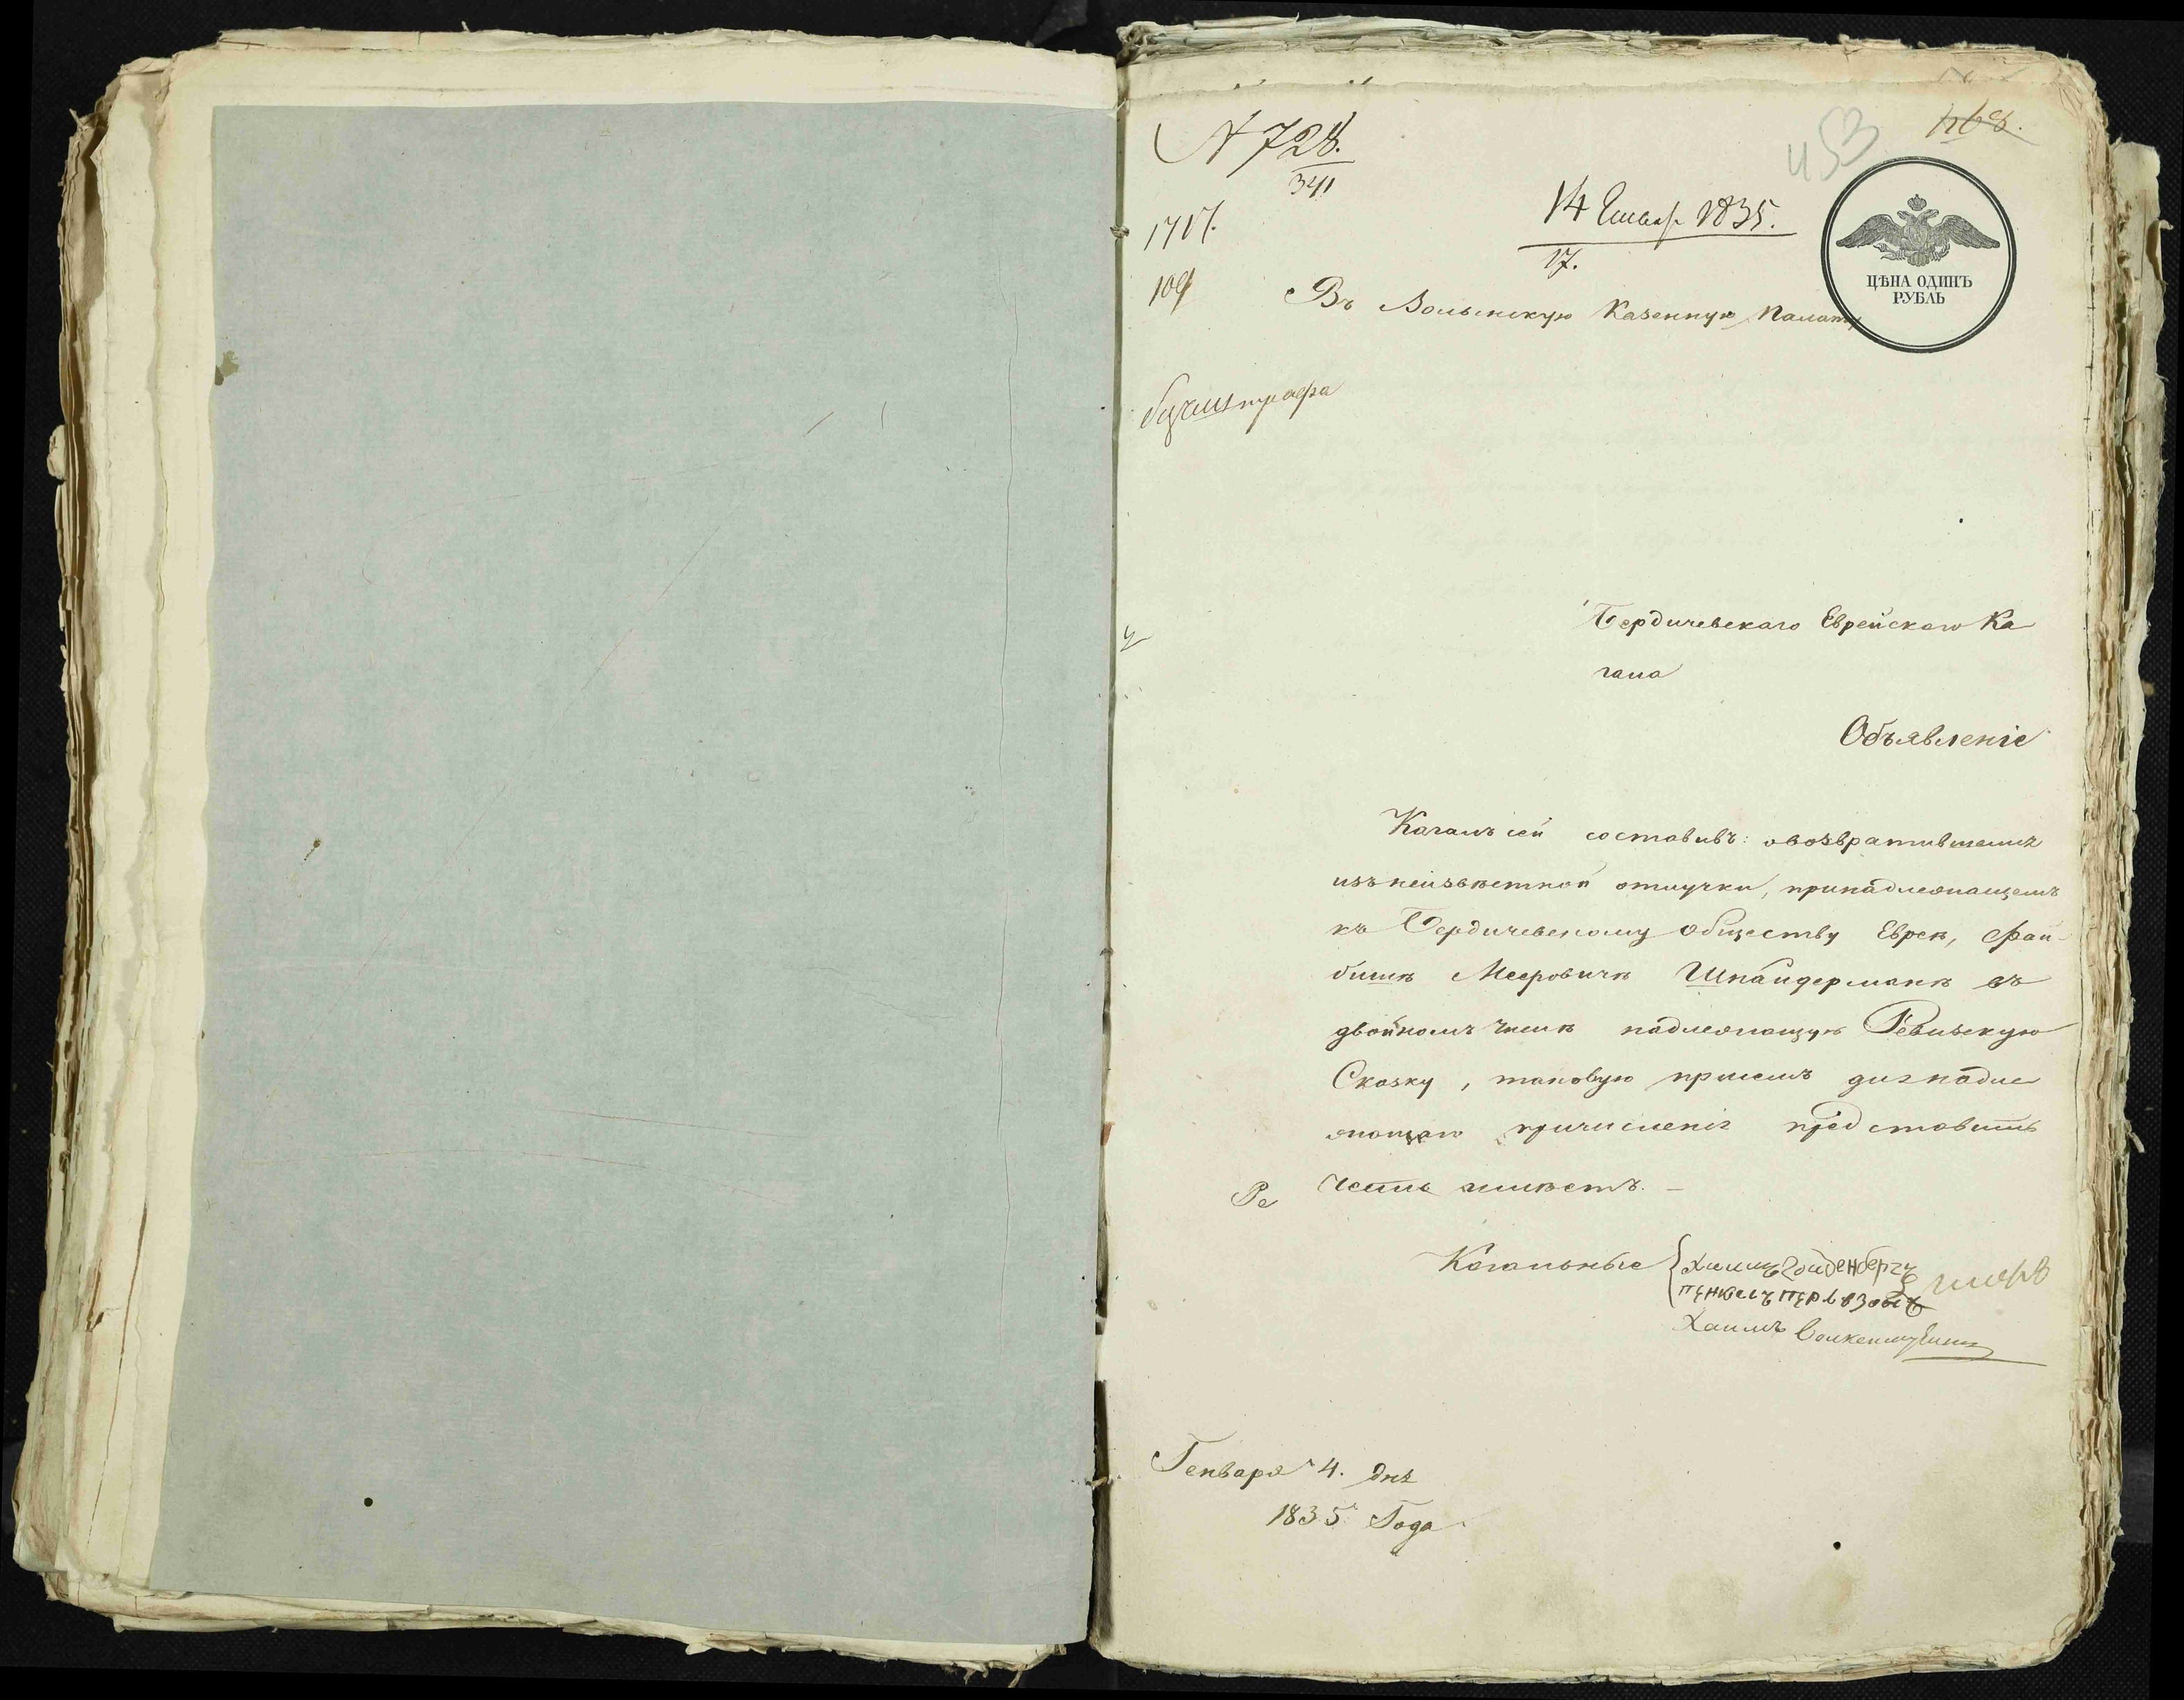 453
N 728.
341
1717.
109
14 Генвар 1835.
17.
ЦѢНА ОДИНЪ
РУБЛЬ
Въ Волынскую Казенную Палату
безъ штрафа
Бердичевскаго Еврейскаго Ка
гала
Объявленіе
Кагалъ сей составивъ: овозвратившемся
изънеизвѣстной отлучки, принадлежащемъ
къ Бердичевскому Обществу Евреѣ, Фай-
бишѣ Мееровичѣ Шнайдерманѣ въ
двойномъ числѣ надлежащую Ревизскую
Сказку, таковую присемъ длянадле
жащаго причисленія представить
Ре честь имѣетъ. -
Кагальные
Хаимъ
Генваря 4. дня
1835 Года